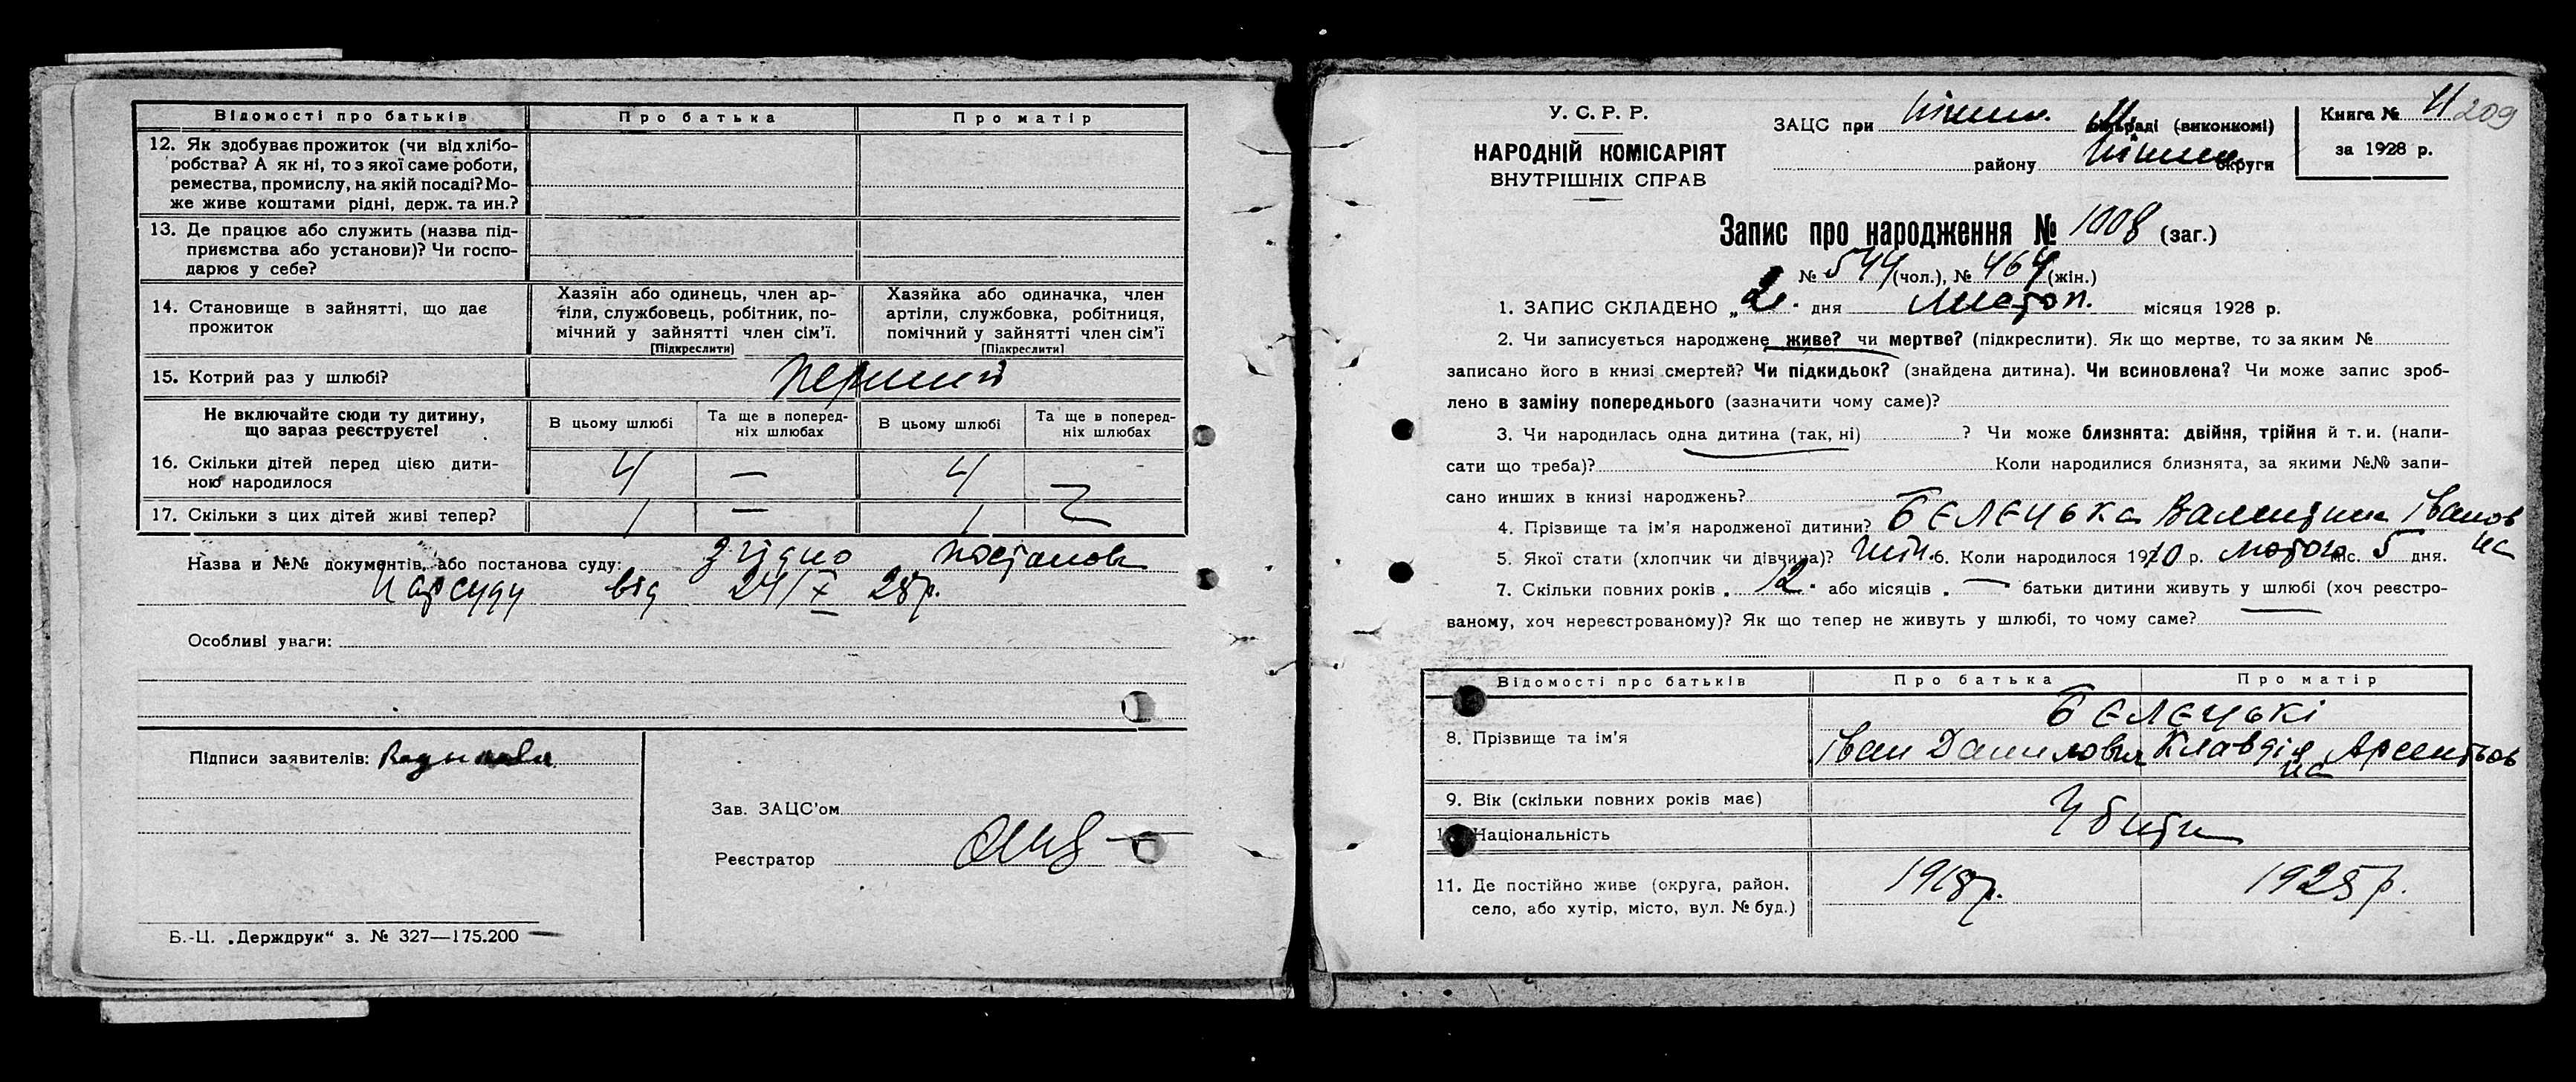 Відомості про батьків Про батька Про матір
12. Як здобуває прожиток (чи від хлібо-
робства? А як ні, то з якої саме роботи,
ремества, промислу, на якій посаді? Мо-
же живе коштами рідні, держ. та ин.?
13. Де працює або служить (назва під-
приємства або установи)? Чи госпо-
дарює у себе?
14. Становище в зайнятті, що дає
прожиток
Хазяїн або одинець, член ар-
тіли, службовець, робітник, по-
мічний у зайнятті член сім'ї.
[Підкреслити]
Хазяйка або одиначка, член
артіли, службовка, робітниця,
помічний у зайнятті член сім'ї
[Підкреслити]
15. Котрий раз у шлюбі? перший
Не включайте сюди ту дитину,
що зараз реєструєте!
В цьому шлюбі
Та ще в поперед-
ніх шлюбах
В цьому шлюбі
Та ще в поперед-
ніх шлюбах
16. Скільки дітей перед цією дити-
ною народилося 4 — 4 —
17. Скільки з цих дітей живі тепер? 1 — 1
Назва и №№ документів, або постанова суду: згідно постанов
Нарсуду від 24/X 28р.
Особливі уваги:
Підписи заявителів:
Зав. ЗАЦС'ом
Реєстратор
Б.-Ц. „Держдрук“ з. № 327—175.200
У. С. Р. Р.
НАРОДНІЙ КОМІСАРІЯТ
ВНУТРІШНІХ СПРАВ
ЗАЦС при (виконкомі)
району округи
Книга № 11 209
за 1928 р.
Запис про народження № 1008 (заг.)
№ 544 (чол.), № 464 (жін.)
1. ЗАПИС СКЛАДЕНО „2“ дня листоп. місяця 1928 р.
2. Чи записується народжене живе? чи мертве? (підкреслити). Як що мертве, то за яким №
записано його в книзі смертей? Чи підкидьок? (знайдена дитина). Чи всиновлена? Чи може запис зроб-
лено в заміну попереднього (зазначити чому саме)?
3. Чи народилась одна дитина (так, ні) ? Чи може близнята: двійня, трійня й т. и. (напи-
сати що треба)? Коли народилися близнята, за якими №№ запи-
сано инших в книзі народжень?
4. Прізвище та ім'я народженої дитини? Бєлєцька Валентина Іванов
на
5. Якої стати (хлопчик чи дівчина)? жін. 6. Коли народилося 1910 р. лютого міс. 5 дня.
7. Скільки повних років „12“ або місяців „—“ батьки дитини живуть у шлюбі (хоч реєстро-
ваному, хоч нереєстрованому)? Як що тепер не живуть у шлюбі, то чому саме?
Відомості про батьків Про батька Про матір
Бєлєцькі
8. Прізвище та ім'я Іван Данилович Клавдія Арсентьов
на
9. Вік (скільки повних років має)
10. Національність Убити
11. Де постійно живе (округа, район,
село, або хутір, місто, вул. № буд.)
1918р. 1925р.